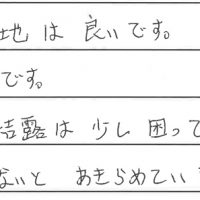 地は 良いです。
です。
結露は 少し 困って
ないと あきらめてい